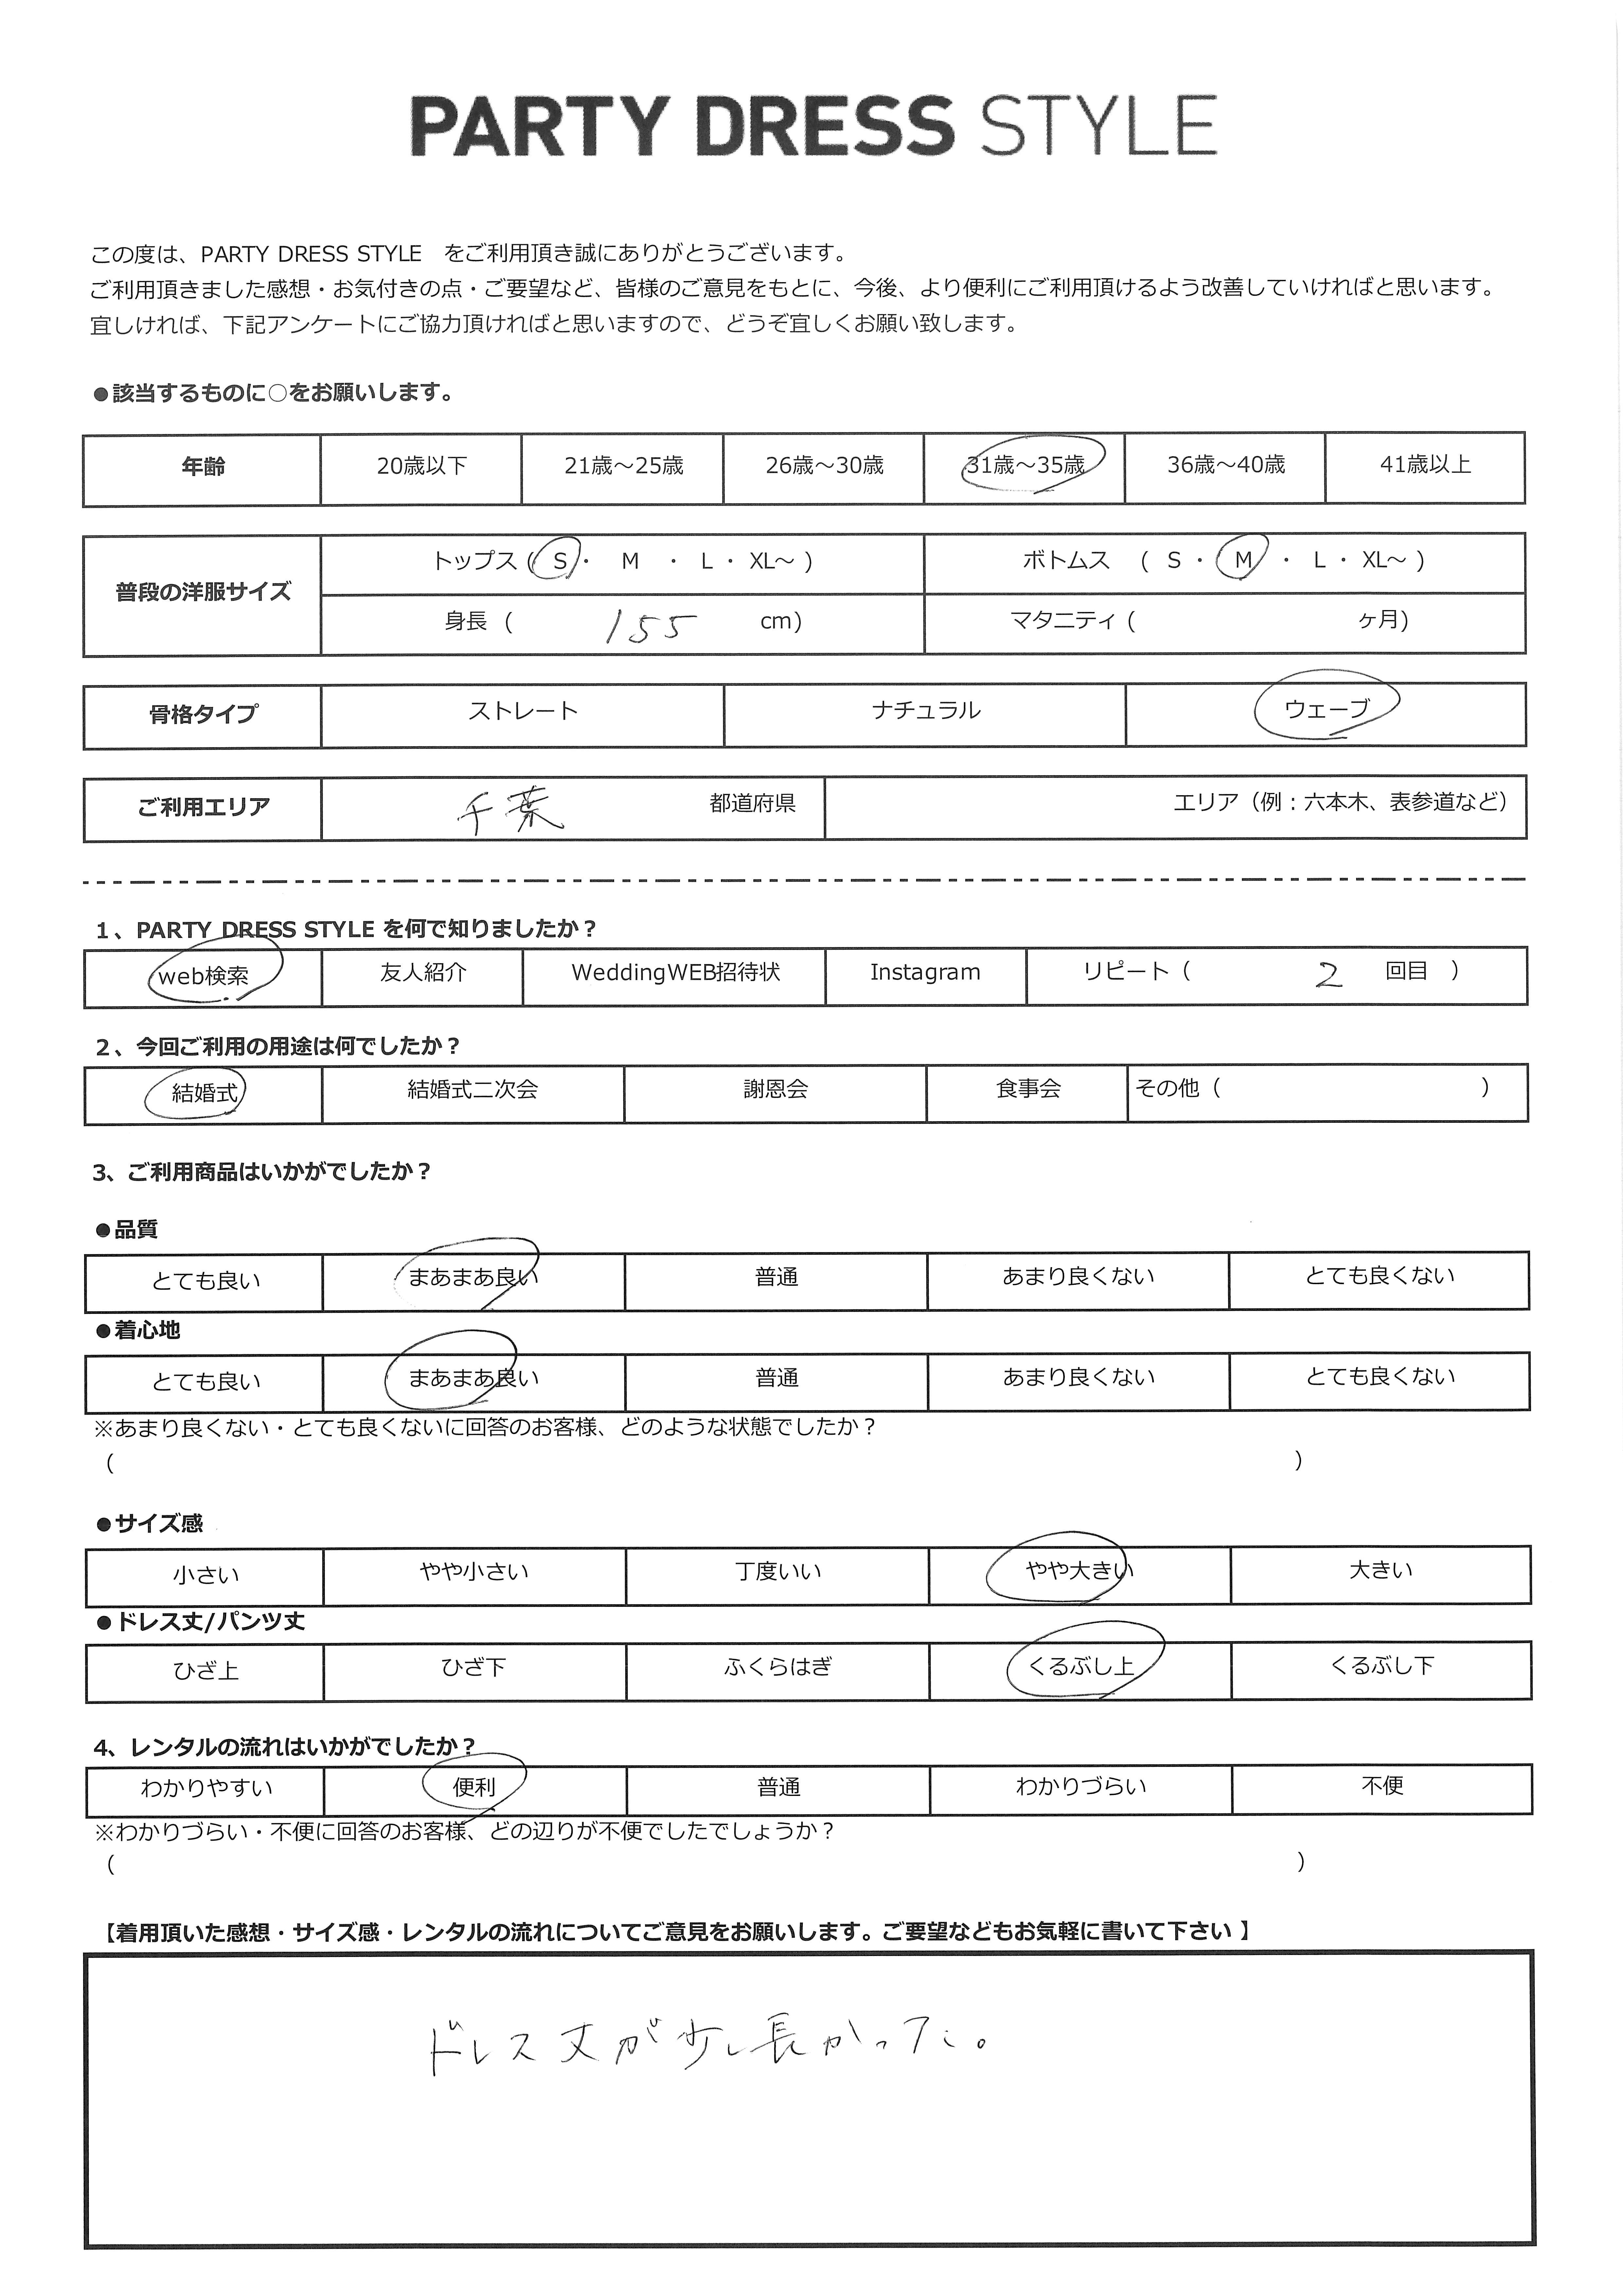 PARTY DRESS STYLE
この度は、PARTY DRESS STYLE をご利用頂き誠にありがとうございます。
ご利用頂きました感想・お気付きの点・ご要望など、皆様のご意見をもとに、今後、より便利にご利用頂けるよう改善していければと思います。
宜しければ、下記アンケートにご協力頂ければと思いますので、どうぞ宜しくお願い致します。
●該当するものに○をお願いします。
年齢 20歳以下 21歳～25歳 26歳～30歳 31歳～35歳 36歳～40歳 41歳以上
普段の洋服サイズ
トップス ( S ・ M ・ L ・ XL～ ) ボトムス ( S ・ M ・ L ・ XL～ )
身長 ( 155 cm) マタニティ ( ヶ月)
骨格タイプ ストレート ナチュラル ウェーブ
ご利用エリア 千葉 都道府県 エリア（例：六本木、表参道など）
1、PARTY DRESS STYLE を何で知りましたか？
web検索 友人紹介 WeddingWEB招待状 Instagram リピート（ 2 回目 ）
2、今回ご利用の用途は何でしたか？
結婚式 結婚式二次会 謝恩会 食事会 その他（ ）
3、ご利用商品はいかがでしたか？
●品質
とても良い まあまあ良い 普通 あまり良くない とても良くない
●着心地
とても良い まあまあ良い 普通 あまり良くない とても良くない
※あまり良くない・とても良くないに回答のお客様、どのような状態でしたか？
( )
●サイズ感
小さい やや小さい 丁度いい やや大きい 大きい
●ドレス丈/パンツ丈
ひざ上 ひざ下 ふくらはぎ くるぶし上 くるぶし下
4、レンタルの流れはいかがでしたか？
わかりやすい 便利 普通 わかりづらい 不便
※わかりづらい・不便に回答のお客様、どの辺りが不便でしたでしょうか？
( )
【着用頂いた感想・サイズ感・レンタルの流れについてご意見をお願いします。ご要望などもお気軽に書いて下さい 】
ドレス丈が少し長かった。